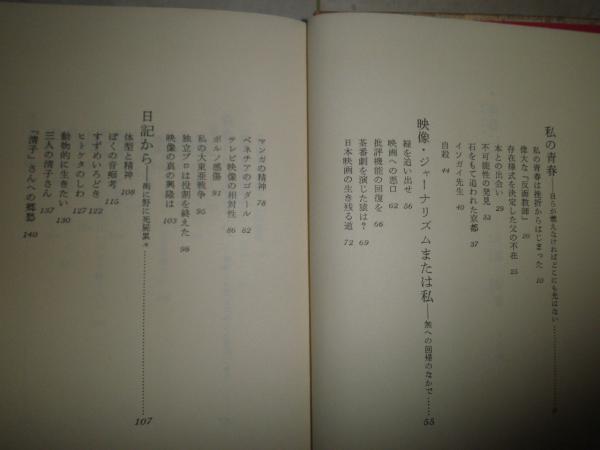 私の青春──自らが燃えなければどこにも光はない
私の青春は挫折からはじまった 10
偉大な「反面教師」 20
存在様式を決定した父の不在 25
本との出会い 29
不可能性の発見 33
石をもて追われた京都 37
イソガイ先生 40
自殺 44
映像・ジャーナリズムまたは私──無への回帰のなかで 55
緑を追い出せ 56
映画への悪口 62
批評機能の回復を 66
茶番劇を演じた填は? 69
日本映画の生き残る道 72
マンガの精神 78
ベネチアのゴダール 82
テレビ映像の相対性 86
ポルノ感傷 91
私の大東亜戦争 95
独立プロは役割を終えた 98
映像の真の興隆は 103
日記から──街に野に死屍累々 107
体型と精神 108
ぼくの音痴考 115
すずめいろどき 122
ヒトケタのしわ 127
動物的に生きたい 130
三人の清子さん 137
「清子」さんへの郷愁 140